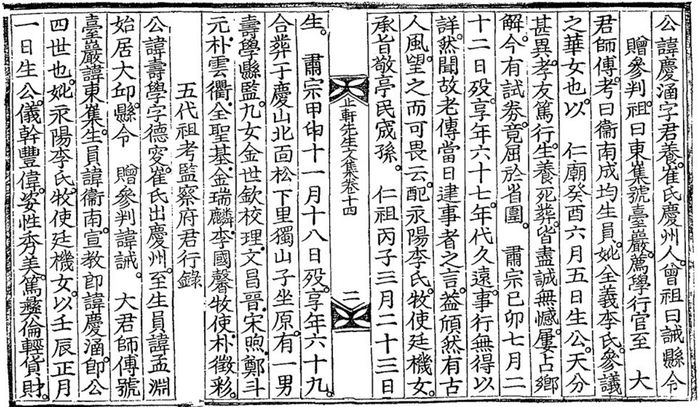 公諱慶涵字君養崔氏慶州人曾祖曰誠縣令
贈參判祖曰東㠍號臺巖薦學行官至 大
君師傅考曰衞南成均生員妣全義李氏參議
之華女也以 仁廟癸酉六月五日生公天分
甚異孝友篤行生養死葬皆盡誠無憾屢占鄉
解今有試券竟屈於省圍 肅宗己卯七月二
十二日歿享年六十七年代久遠事行無得以
詳然聞故老傳當日逮事者之言益頎然有古
人風望之而可畏云配永陽李氏牧使廷機女
承旨敬亭民宬孫 仁祖丙子三月二十三日
止軒先生文集卷十四 二
生 肅宗甲申十一月十八日歿享年六十九
合葬于慶山北面松下里獨山子坐原有一男
壽學縣監九女金世欽校理文昌晉宋煦鄭斗
元朴雲衢全聖基金瑞麟李國馨牧使朴徵彩
五代祖考監察府君行錄
公諱壽學字德叜崔氏出慶州至生員諱孟淵
始居大邱縣令 贈參判諱誠 大君師傅號
臺巖諱東㠍生員諱衞南宣教郎諱慶涵卽公
四世也妣永陽李氏牧使廷機女以壬辰正月
一日生公儀幹豐偉姿性秀美篤彝倫輕貨財